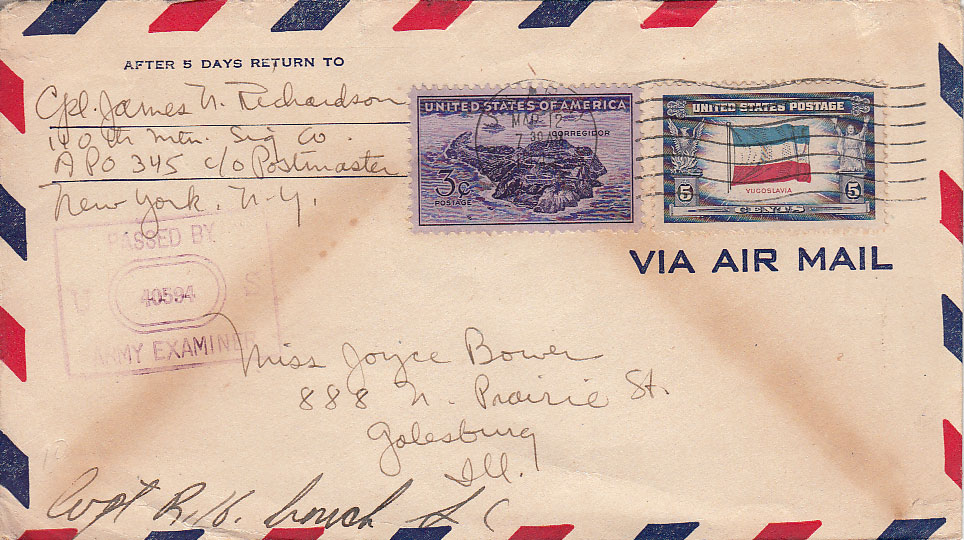 AFTER 5 DAYS RETURN TO
Cpl. James N. Richardson
110th Mtn. Sig Co.
APO 345 c/o Postmaster
New York, N.Y.
UNITED STATES OF AMERICA
CORREGIDOR
3c
POSTAGE
MAR 12
7 30 AM
UNITED STATES POSTAGE
YUGOSLAVIA
5 5
CENTS
VIA AIR MAIL
PASSED BY
U 40594 S
ARMY EXAMINER
Miss Joyce Bower
888 N. Prairie St.
Galesburg
Ill.
R.H.